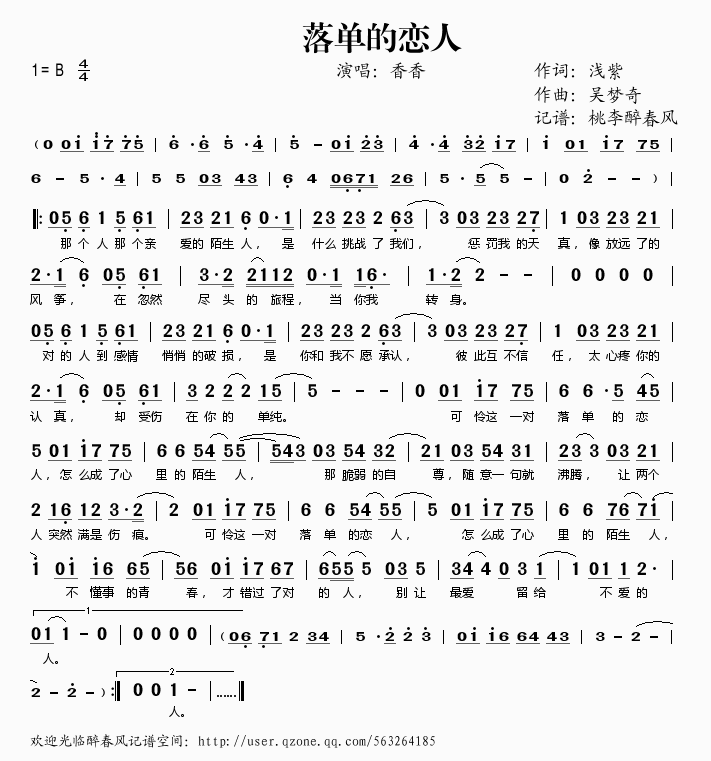 落单的恋人
1= B 4/4 演唱：香香 作词：浅紫
作曲：吴梦奇
记谱：桃李醉春风
（0 0i i7 75 | 6 · 6 5 · 4 | 5 - 0i 23 | 4 · 4 32 i7 | i 01 i7 75
6 - 5 · 4 | 5 5 03 43 | 6 4 0671 26 | 5 · 5 5 | 0 2 - - ）|
‖: 05 6 1 5 61 | 23 21 6 0 · 1 | 23 23 2 63 | 3 03 23 27 | 1 03 23 21 |
那 个 人 那 个 亲 爱的 陌生 人， 是 什么 挑战 了 我们， 惩 罚我 的天 真， 像 放远 了的
2 · 1 6 05 61 | 3 · 2 2112 0 · 1 16 · | 1 · 2 2 - - | 0 0 0 0 |
风 筝， 在 忽然 尽 头 的 旅程， 当 你我 转 身。
05 6 1 5 61 | 23 21 6 0 · 1 | 23 23 2 63 | 3 03 23 27 | 1 03 23 21 |
对 的 人 到 感情 悄悄 的破 损， 是 你和 我不 愿 承认， 彼 此互 不信 任， 太 心疼 你的
2 · 1 6 05 61 | 3 2 2 2 15 | 5 - - - | 0 01 i7 75 | 6 6 · 5 45 |
认 真， 却 受伤 在 你 的 单纯。 可 怜这 一对 落 单 的 恋
5 01 i7 75 | 6 6 54 55 | 543 03 54 32 | 21 03 54 31 | 23 3 03 21 |
人， 怎 么成 了心 里 的 陌生 人， 那 脆弱 的自 尊， 随 意一 句就 沸腾， 让 两个
2 16 12 3 · 2 | 2 01 i7 75 | 6 6 54 55 | 5 01 i7 75 | 6 6 76 7i |
人 突然 满是 伤 痕。 可 怜这 一对 落 单 的恋 人， 怎 么成 了心 里 的 陌生 人，
i 0i i6 65 | 56 0i i7 67 | 655 5 03 5 | 34 4 0 31 | 1 01 1 2 · |
不 懂事 的青 春， 才 错过 了对 的 人， 别 让 最爱 留给 不 爱 的
1
01 1 - 0 | 0 0 0 0 |（06 71 2 34 | 5 · 2 2 3 | 0i i6 64 43 | 3 - 2 -
人。
2
2 - 2 - ）:‖ 0 0 1 - |……‖
人。
欢迎光临醉春风记谱空间：http://user.qzone.qq.com/563264185